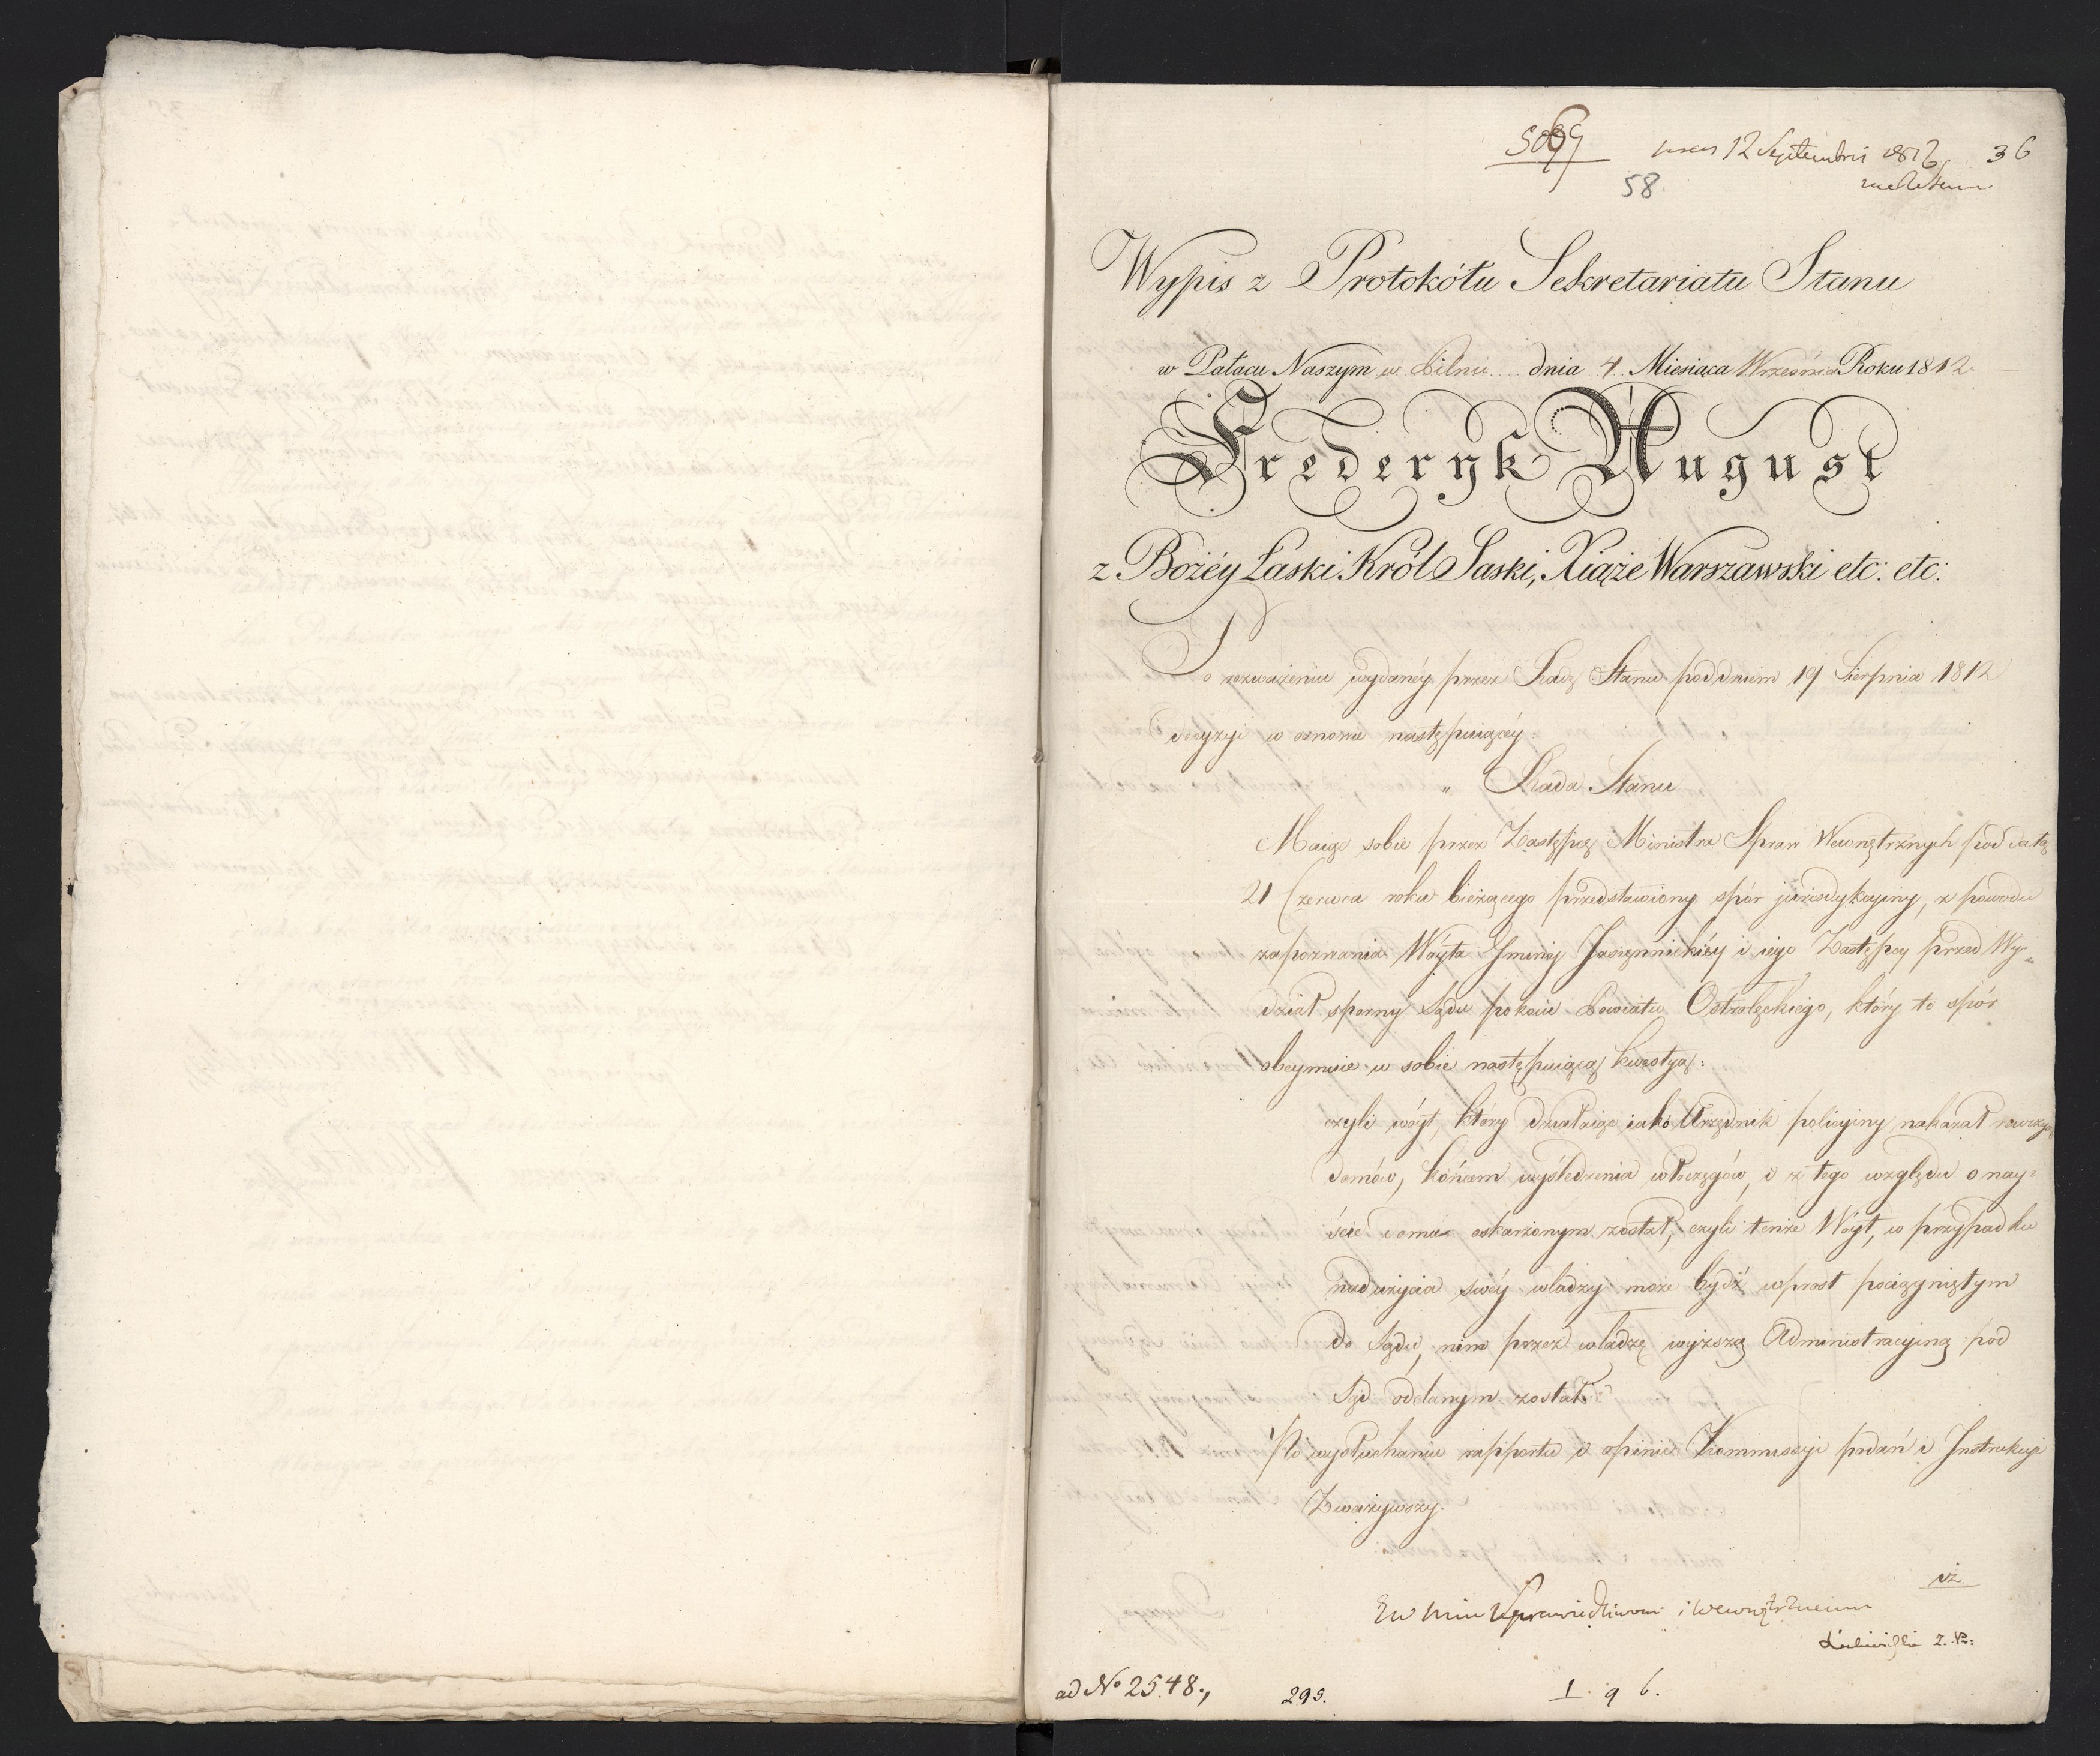 12 Septembris 1812 36
58.
Wypis z Protokółu Sekretariatu Stanu
w Pałacu Naszym w Pilnic dnia 4 Miesiąca Września Roku 1812.
Frederyk August
z Bożéy Łaski Król Saski, Xiąże Warszawski etc: etc:
Po rozważeniu wydanéy przez Radę Stanu pod dniem 19 Sierpnia 1812
decyzyi w osnowie następuiącéy.
" Rada Stanu
Maiąc sobie przez Zastępcę Ministra Spraw Wewnętrznych pod datą
21 Czerwca roku bieżącego przedstawiony spór jurisdykcyiny, z powodu
zapozwania Wóyta Gminy i iego Zastępcy przed Wy-
dział sporny Sądu pokoiu Powiatu Ostrołęckiego, który to spór
obeymuie w sobie następuiącą kwestyą:
czyli wóyt, który działaiąc iako Urzędnik policyiny nakazał rewizyą
domów, końcem wyśledzenia włóczęgów, i z tego względu o nay-
ście domu oskarżonym został, czyli tenże Wóyt, w przypadku
nadużycia swéy władzy może bydź wprost pociągniętym
do Sądu, nim przez władzę wyższą Administracyiną pod
Sąd oddanym został?
Po wysłuchaniu rapportu i opinii Kommissyi podań i Instrukcyi
Zważywszy.
vż
Sprawiedliwości i Wewnętrznemu
ad No 2548.,
295.
1. 9 6.